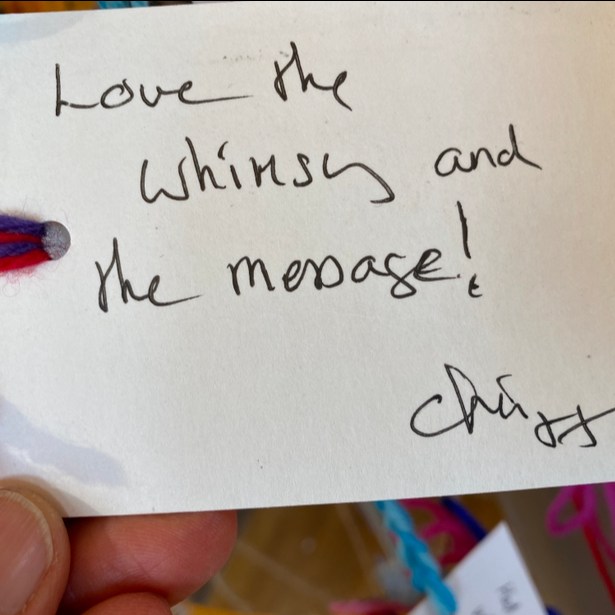 Love the
whimsy and
the message!